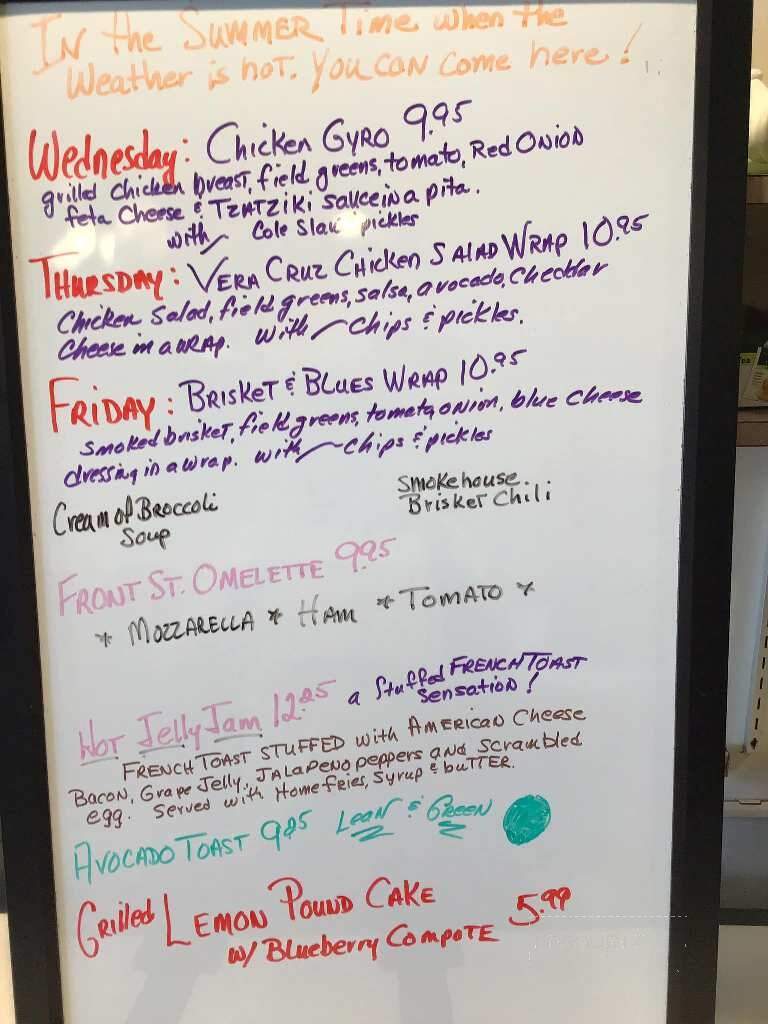 IN the SUMMER TIME when the
Weather is hot. You can come here!
Wednesday: Chicken GYRO 9.95
grilled chicken breast, field greens, tomato, Red Onion
feta Cheese & TZATZIKI sauce in a pita.
with Cole Slaw pickles
THURSDAY: VERA CRUZ CHICKEN SALAD WRAP 10.95
Chicken Salad, field greens, salsa, avocado, Cheddar
Cheese in a WRAP. with Chips & pickles.
FRIDAY: BRISKET & BLUES WRAP 10.95
smoked brisket, field greens, tomato, onion, blue cheese
dressing in a wrap. with chips & pickles
Cream of Broccoli
Soup
Smokehouse
Brisket Chili
FRONT ST. OMELETTE 9.95
* MOZZARELLA * HAM * TOMATO *
HOT Jelly Jam 12.25 a Stuffed FRENCH TOAST
Sensation!
FRENCH TOAST STUFFED with AMERICAN Cheese
Bacon, Grape Jelly, JALAPENO peppers and Scrambled
egg. Served with Home fries, Syrup & buTTER.
AVOCADO TOAST 9.25 LEAN & GREEN
Grilled LEMON POUND CAKE 5.99
w/ Blueberry COMPOTE